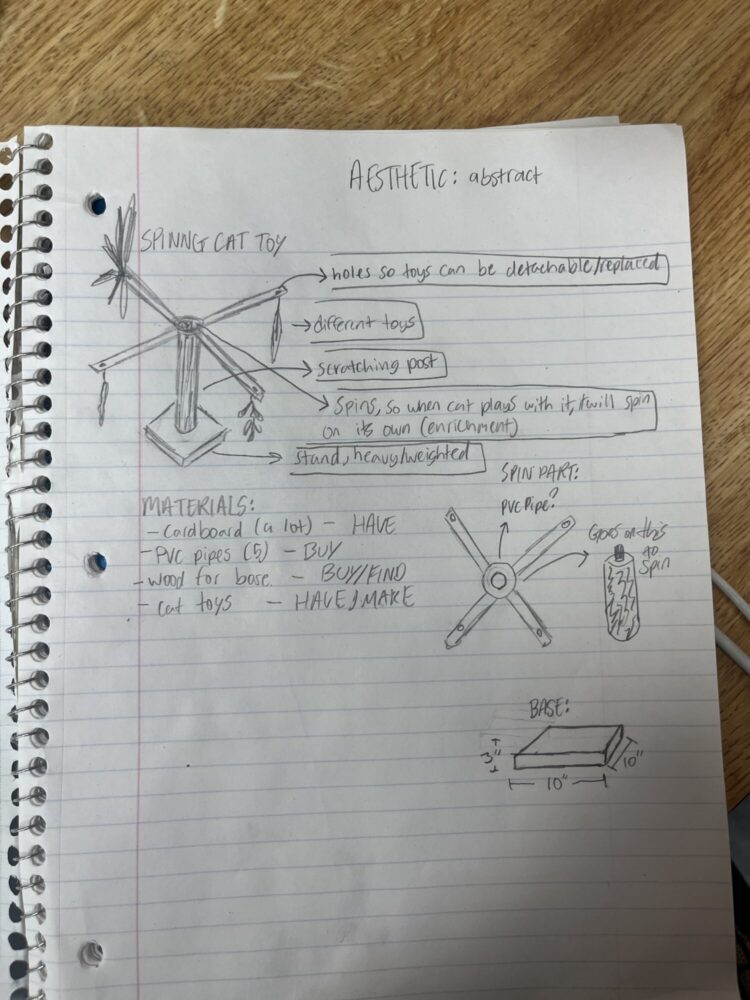 AESTHETIC: abstract
SPINNG CAT TOY
holes so toys can be detachable/replaced
different toys
scratching post
Spins, so when cat plays with it, it will spin
on its own (enrichment)
stand, heavy/weighted
MATERIALS:
- Cardboard (a lot) - HAVE
- PVC pipes (5) - BUY
- wood for base - BUY/FIND
- cat toys - HAVE/MAKE
SPIN PART:
PVC Pipe?
Goes on this
to
Spin
BASE:
3"
10"
10"